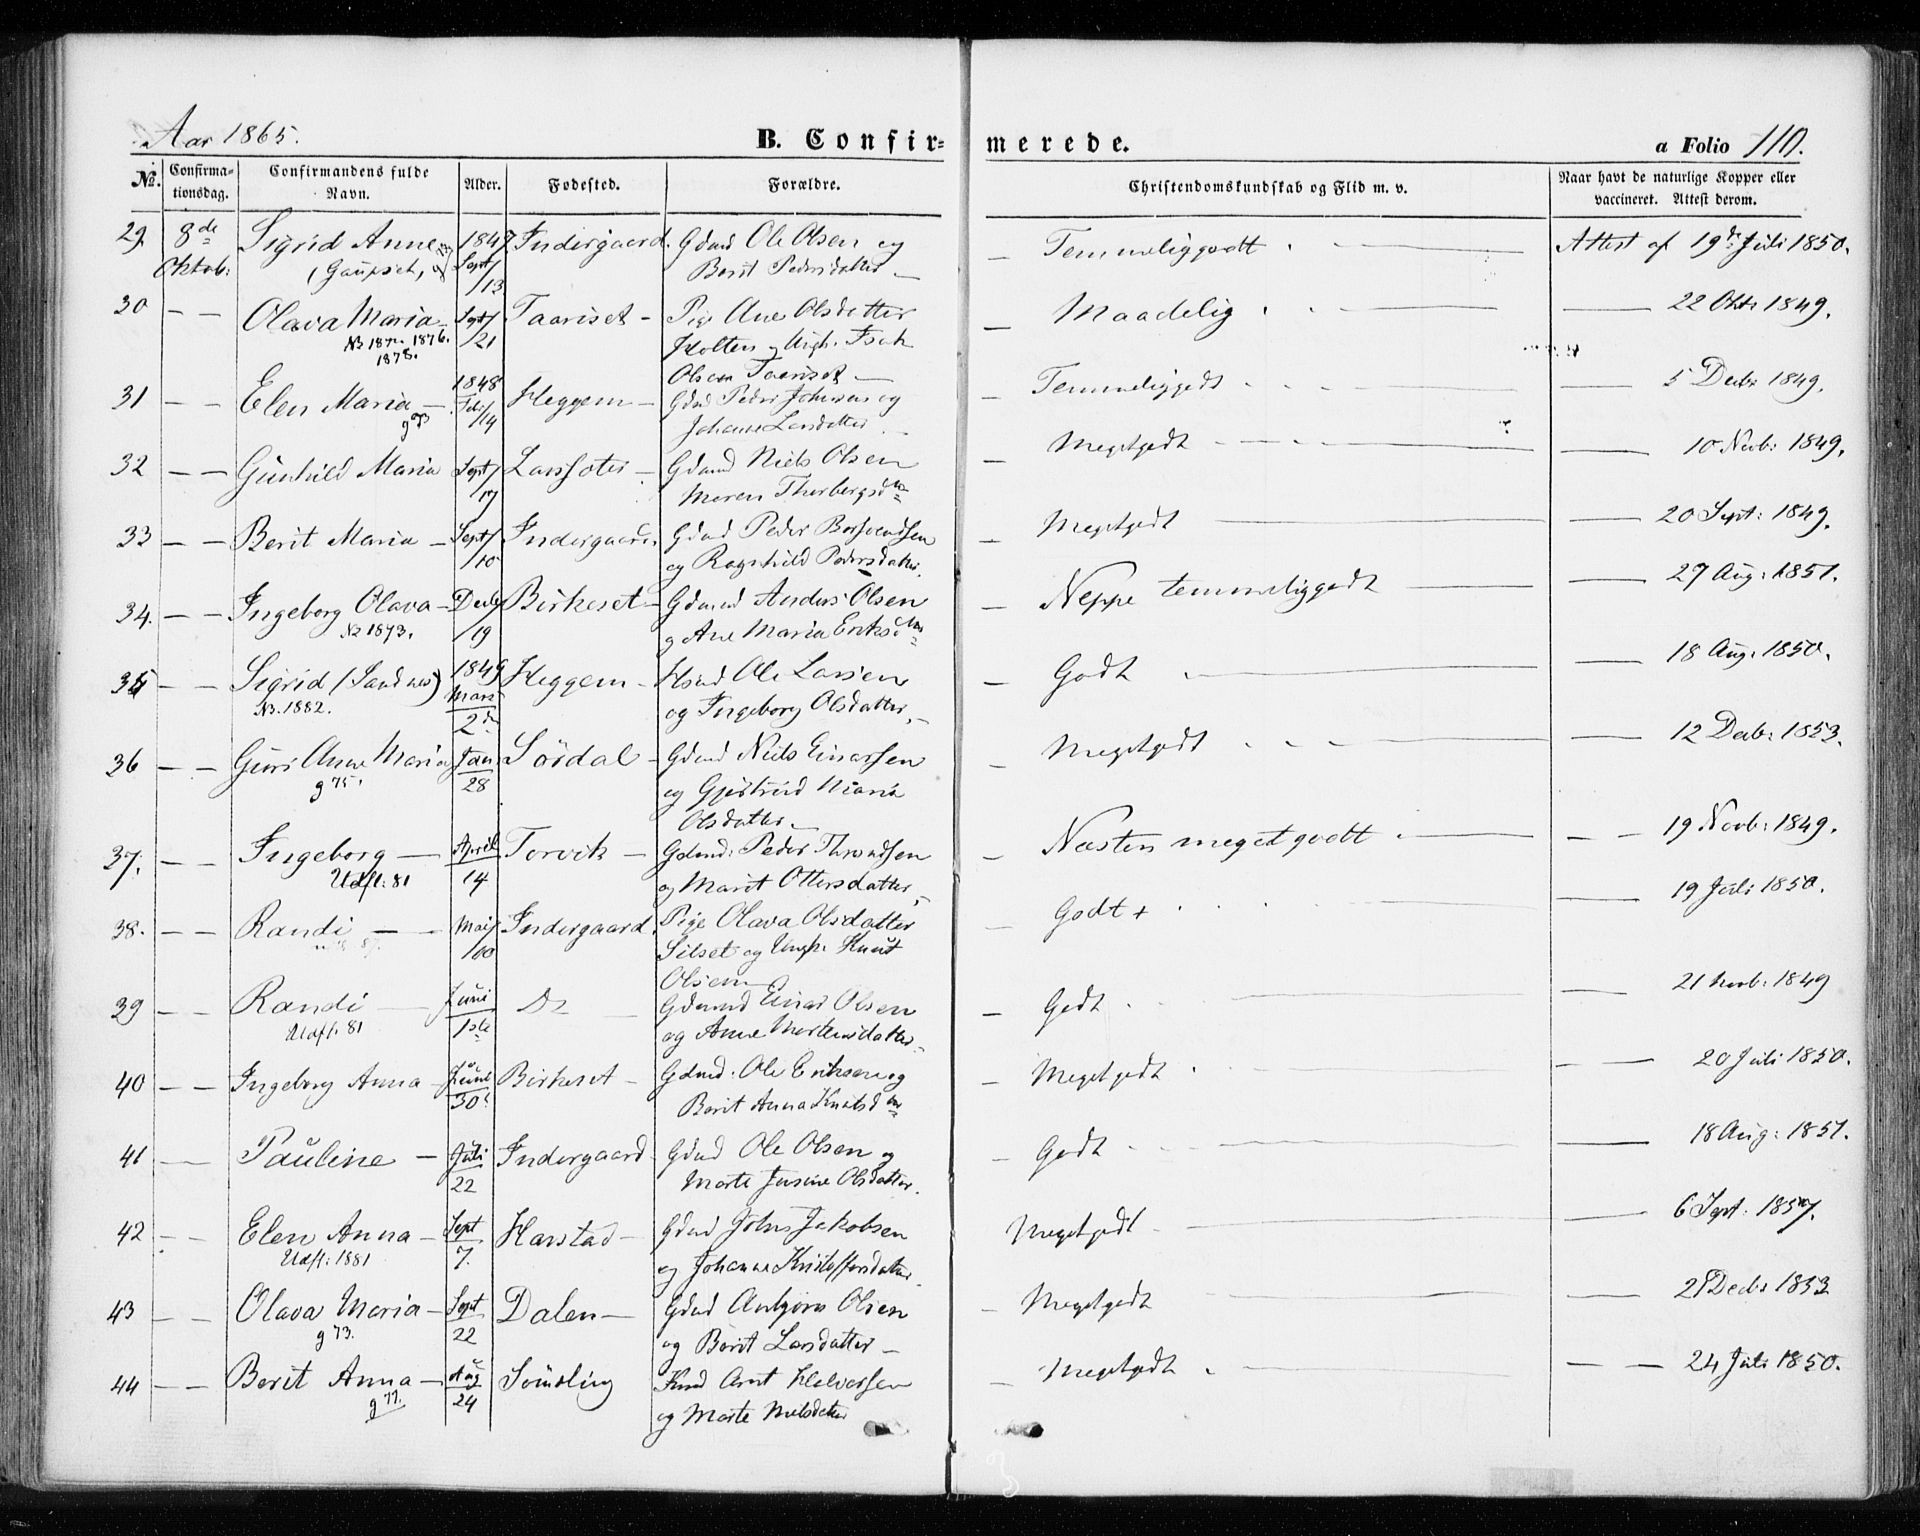 Aar 1865. B. Confirmerede. a Folio 110.
No. Confirmationsdag. Confirmandens fulde Navn. Alder. Fødested. Forældre. Christendomskundskab og Flid m. v. Naar havt de naturlige Kopper eller vaccineret. Attest derom.
29. 8de Sigrid Anne 1847. Indergaard. Gdmd Ole Olsen og Temmeliggodt Attest af 19de Juli 1850.
Oktob: (Gaupset, Sept/13 Berit Pedersdatter
30 — — Olava Maria Sept/21 Taariset Pige Ane Olsdatter Maadelig 22 Okt: 1849.
1876. 1878. Holten og Ungk. Isak
Olsen Taariset
31 — — Elen Maria 1848 Feb/14 Heggem Gdmd Peder Johnsen og Temmeliggodt 5 Decb: 1849.
g 73 Johanne Larsdatter
32 — — Gunhild Maria Sept/17 Gdmd Niels Olsen Megetgodt 10 Novb: 1849.
Maren Thorbergsdtr
33 — — Berit Maria Sept/10 Indergaard Gdmd Peder Megetgodt 20 Sept: 1849.
og Ragnhild Pedersdatter.
34. — — Ingeborg Olava Decb/19 Birkeset Gdmand Anders Olsen Neppe temmeliggodt 27 Aug: 1851.
No 1873. og Ane Maria Eriksdtr
35 — — Sigrid (Sandnes) 1849 Mars 2de Heggem Hsmd Ole Larsen Godt 18 Aug: 1850.
NB. 1882. og Ingeborg Olsdatter,
36 — — Guri Anne Maria Jan 28 Sørdal Gdmd Niels Einarsen Megetgodt 12 Decb: 1853.
g 75. og Gjertrud Maria
Olsdatter
37. — — Ingeborg April 14 Torvik Gdmd: Peder Throndsen Næsten megetgodt 19 Novb: 1849.
Udfl: 81 og Marit Ottersdatter,
38. — — Randi Mai/10 Indergaard. Pige Olava Olsdatter Godt + 19 Juli 1850.
Silset og Ungk. Knut
Olsen
39 — — Randi Juni 1ste Do Gdmand Einar Olsen Godt 21 Novb: 1849
Udfl. 81 og Anne Mortensdatter
40 — — Ingeborg Anna Juni 30 Birkeset Gdmd. Ole Eriksen og Megetgodt 20 Juli 1850.
Berit Anna Knutsdtr
41 — — Pauline Juli 22 Indergaard Gdmd Ole Olsen og Godt 18 Aug: 1851.
Marte Jensine Olsdatter.
42 — — Elen Anna Sept 7. Harstad Gdmd John Jakobsen Megetgodt 6 Sept: 1857.
Udfl: 1881 og Johanne Kristoffersdatter
43 — — Olava Maria Sept 22 Dalen Gdmd Olsen Megetgodt 21 Decb: 1853
g 73. og Berit Larsdatter
44 — — Berit Anna Aug 24 Arnt Halvorsen Megetgodt 24 Juli 1850.
g 77. og Marte Nilsdatter
3